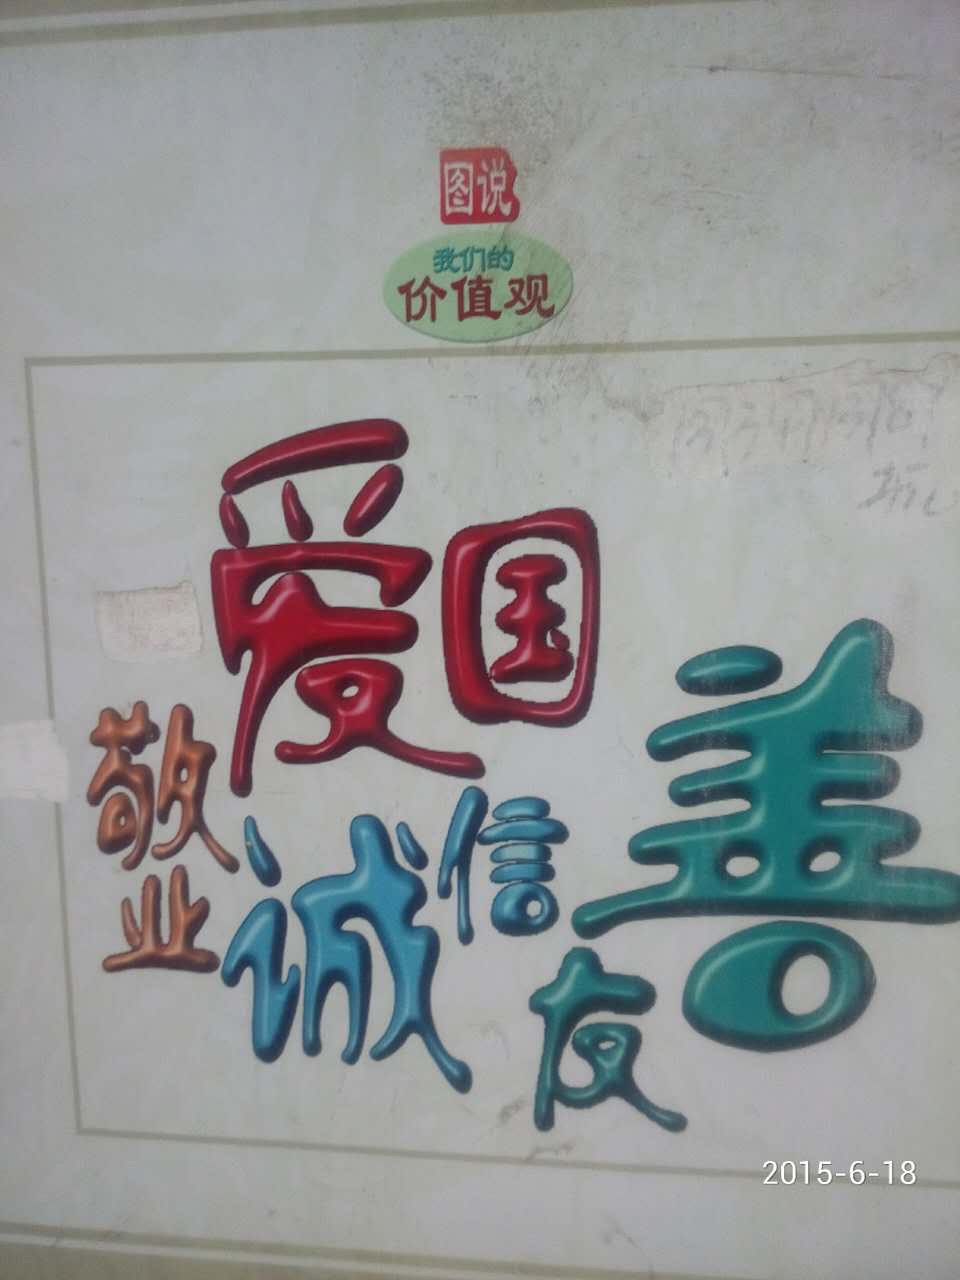 图说
我们的
价值观
爱国
敬业
诚信
友善
2015-6-18